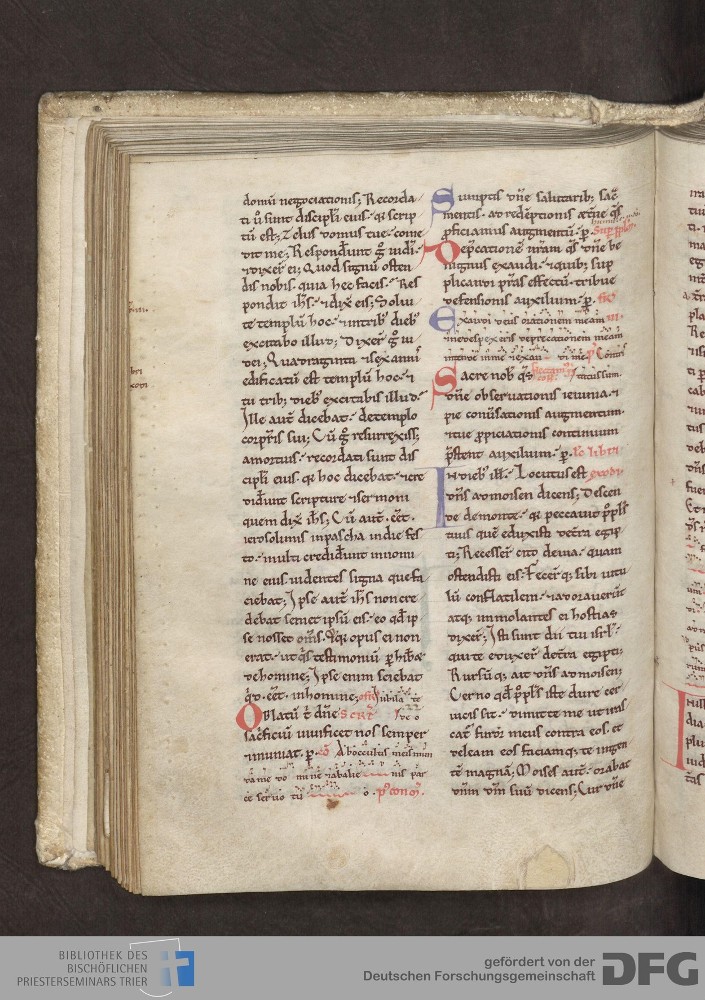 domū negociationis; Recorda
ti ū sunt discipl̄i eius. qꝛ scrip
tū est; Zelus domus tue come
dit me; Respondeꝛunt ḡ iudi
⁊ dixer̄ ei; Quod signū osten
dis nobis. quia hec facis. Res
pondit ih̄s. ⁊ dix̄ eis; Solui
te templū hoc. ⁊ intrib᷒ dieb᷒
excitabo illud; Dixer̄ ḡ iu
dei; Quadraginta ⁊ sex annis
edificatū est templū hoc. ⁊
tu trib; dieb᷒ excitabis illud.
Ille aut̄ dicebat. detemplo
corporis sui; Cū ḡ resurrexiss;
amortuis. recordati sunt dis
cipl̄i eius. qꝛ hoc dicebat. ⁊ cre
diderunt scripture ⁊ sermoni
quem dix̄ ih̄s; Cū aut̄. eet̄.
ierosolimis inpascha indie fes
to. multi crediderunt innomi
ne eius uidentes signa que fa
ciebat; Ipse aut̄ ih̄s non cre
debat semet ipsū eis. eo qd̄ ip
se nosset om̄s. ⁊ qꝛ opus ei non
erat. ut q̄s testimoniū ꝑhibe
de homine; Ipse enim sciebat
qd̄. eet̄. inhomine; off̄ Iubila te
Oblatū t̄ dn̄e SCR̄T̄ de o
sacficiū uiuificet nos semper
⁊ muniat. ꝑ. cō Aboccultis meis mun
da me do mi ne ⁊ abalie nis par
ce seruo tu o. ps̄ com̄.
Sumptis dn̄e salutarib; sac̄
mentis. ad redēptionis ætn̄e q̄s
ꝑficiamus augmentū. ꝑ. Sup ppl̄m
Depcationē nr̄am q̄s dn̄e be
nignus exaudi. ⁊ quib; sup
plicandi pr̄as effectū. tribue
defensionis auxilium. ꝑ. FR̄
Exaudi deus orationem meam III.
⁊ nedespexeris deprecationem meam
intende in me ⁊ exau di me. ps̄ Contur
Sacre nob̄ q̄s
dn̄e obseruationis ieiunia. ⁊
pie conūsationis augmentum.
⁊ tue ꝓpiciationis continuum
p̄stent auxilium. ꝑ. Lc̄ libri
In dieb᷒ ill̄. Locutus est exodi
dn̄s ad moisen dicens; Descen
de de monte. qꝛ peccauit ppl̄s
tuus quē eduxisti de tr̄a egip
ti; Recesser̄ cito deuia. quam
ostendisti eis. Fecer̄ qꝫ sibi uitu
lū conflatilem. ⁊ adorauerūt
atqꝫ immolantes ei hostias
dixer̄; Isti sunt dii tui isrl̄.
qui te eduxer̄ de tr̄a egipti;
Rursū qꝫ ait dn̄s ad moisen;
Cerno qd̄ ppl̄s iste dure cer
uicis sit. dimitte me ut iras
cat᷑ furor meus contra eos. et
deleam eos faciamqꝫ te ingen
tē magnā; Moises aut̄. orabat
dn̄m dm̄ suū dicens; Cur dn̄e
BIBLIOTHEK DES
BISCHÖFLICHEN
PRIESTERSEMINARS TRIER
gefördert von der
Deutschen Forschungsgemeinschaft
DFG